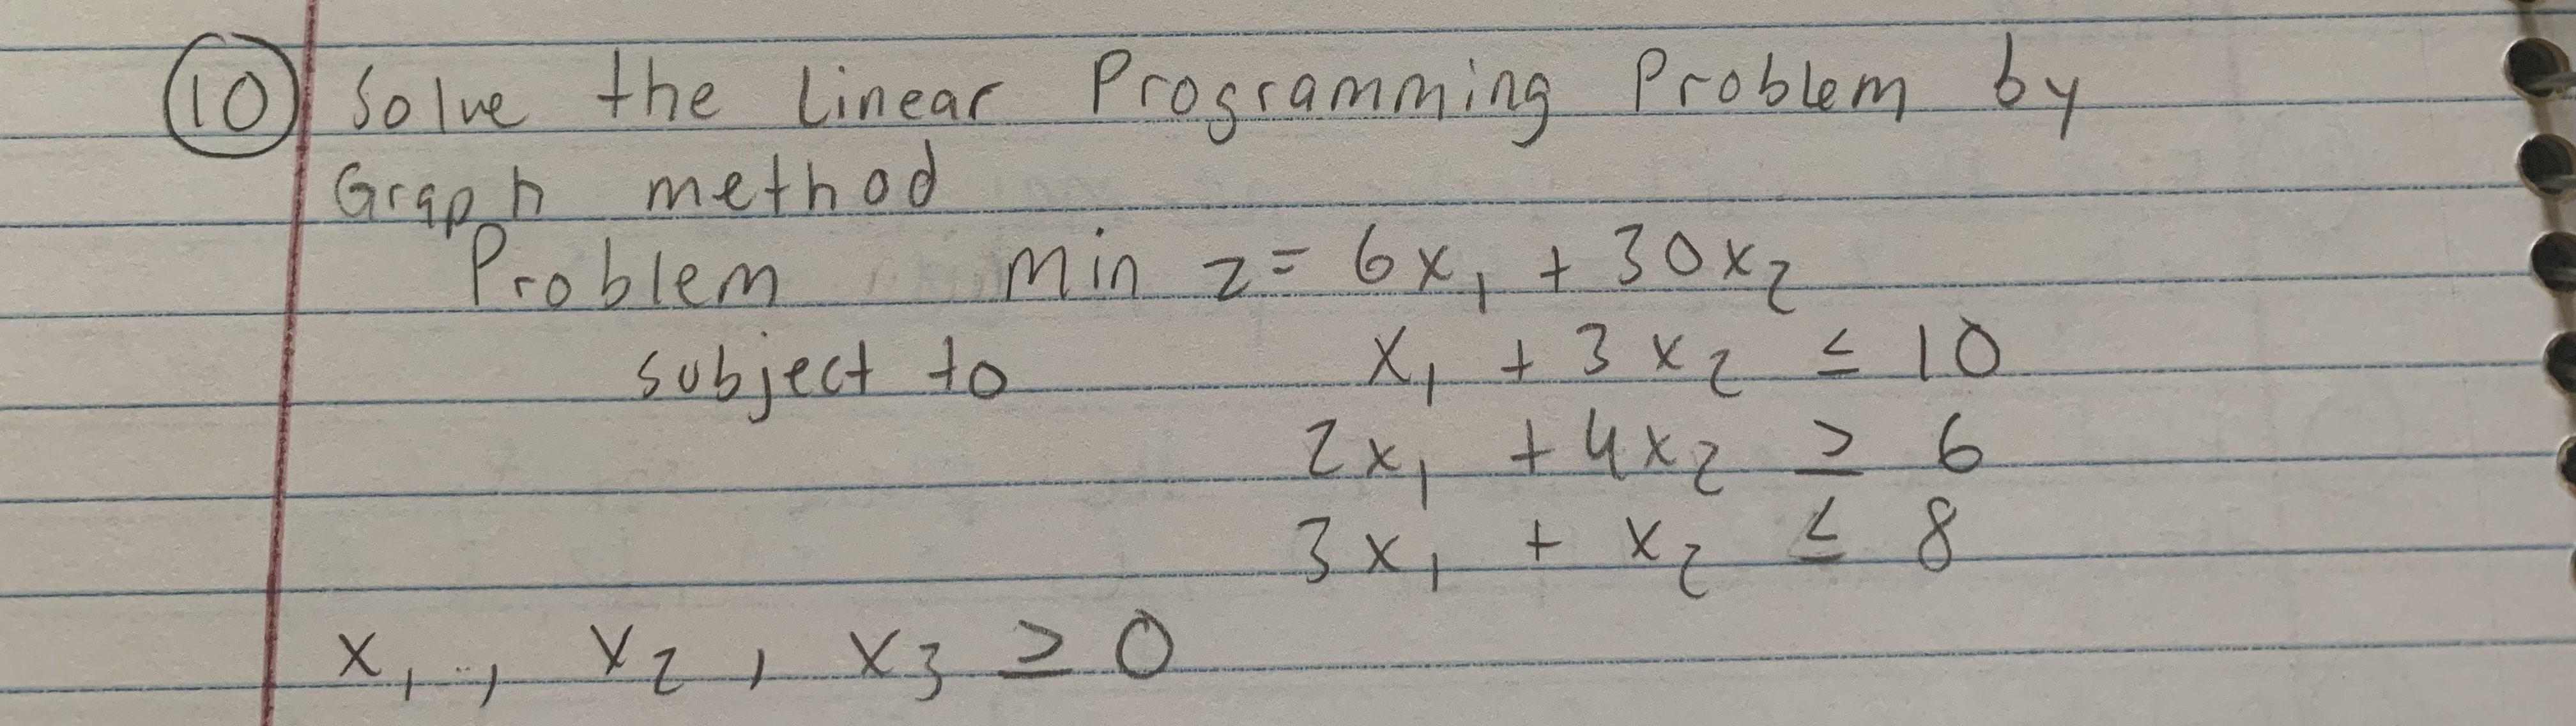 10 Solve the Linear Programming Problem by
Graph method
Problem min z = 6x₁ + 30x₂
subject to x₁ + 3x₂ ≤ 10
2x₁ + 4x₂ ≥ 6
3x₁ + x₂ ≤ 8
x₁, x₂, x₃ ≥ 0